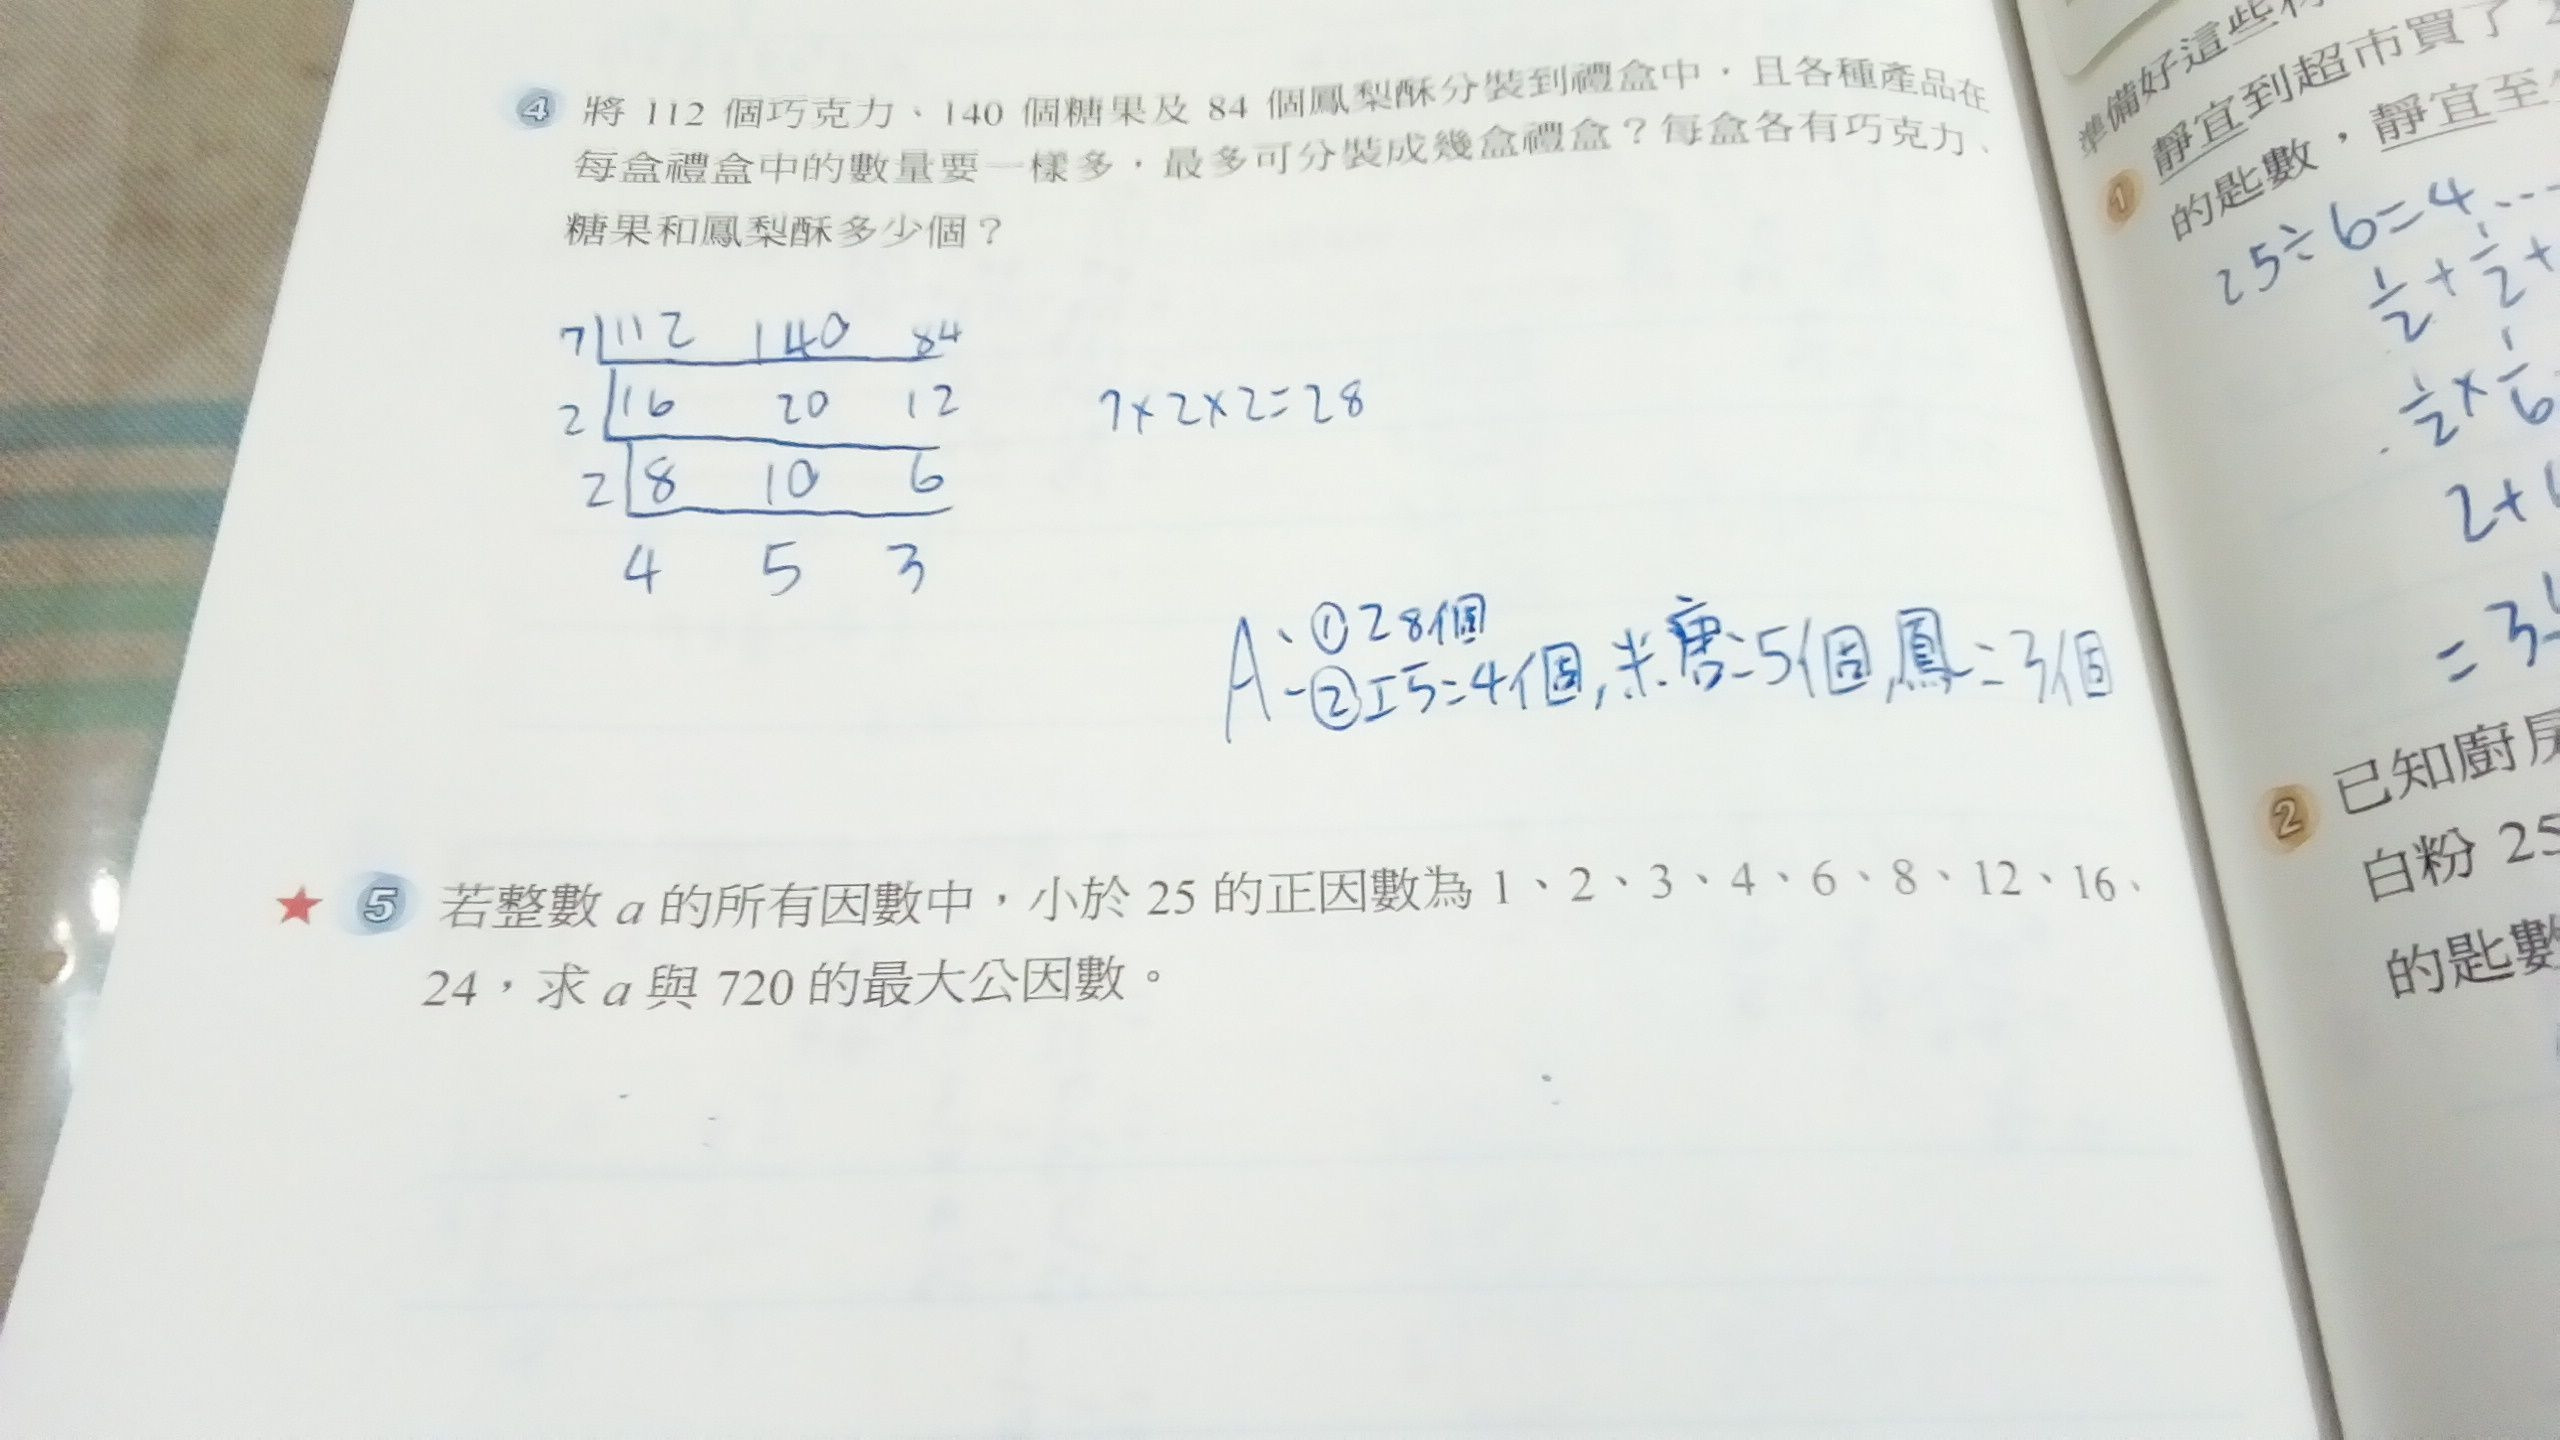 4 將 112 個巧克力、140 個糖果及 84 個鳳梨酥分裝到禮盒中，且各種產品在
每盒禮盒中的數量要一樣多，最多可分裝成幾盒禮盒？每盒各有巧克力、
糖果和鳳梨酥多少個？
7 112 140 84
2 16 20 12 7×2×2=28
2 8 10 6
4 5 3
A、①28個
②巧=4個,糖=5個,鳳=3個
★ 5 若整數 a 的所有因數中，小於 25 的正因數為 1、2、3、4、6、8、12、16、
24，求 a 與 720 的最大公因數。
準備好這些
1 靜宜到超市買了
的匙數，靜宜至
25÷6=4...
1/2+1/2+
1/2×1/6
2+
=3
2 已知廚房
白粉 25
的匙數